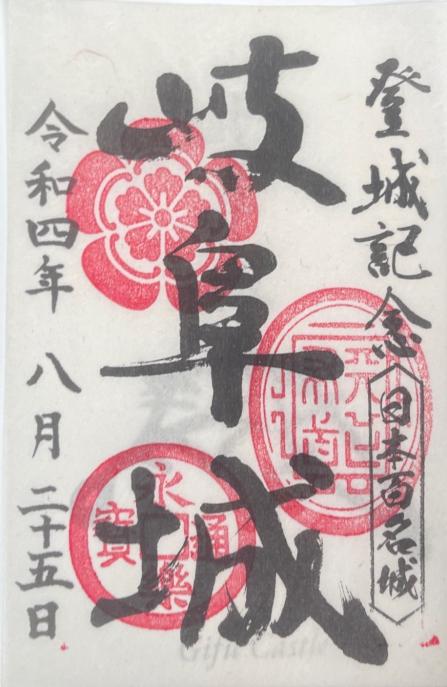 登城記念
日本百名城
岐阜城
令和四年 八月 二十五日
永樂通寳
Gifu Castle